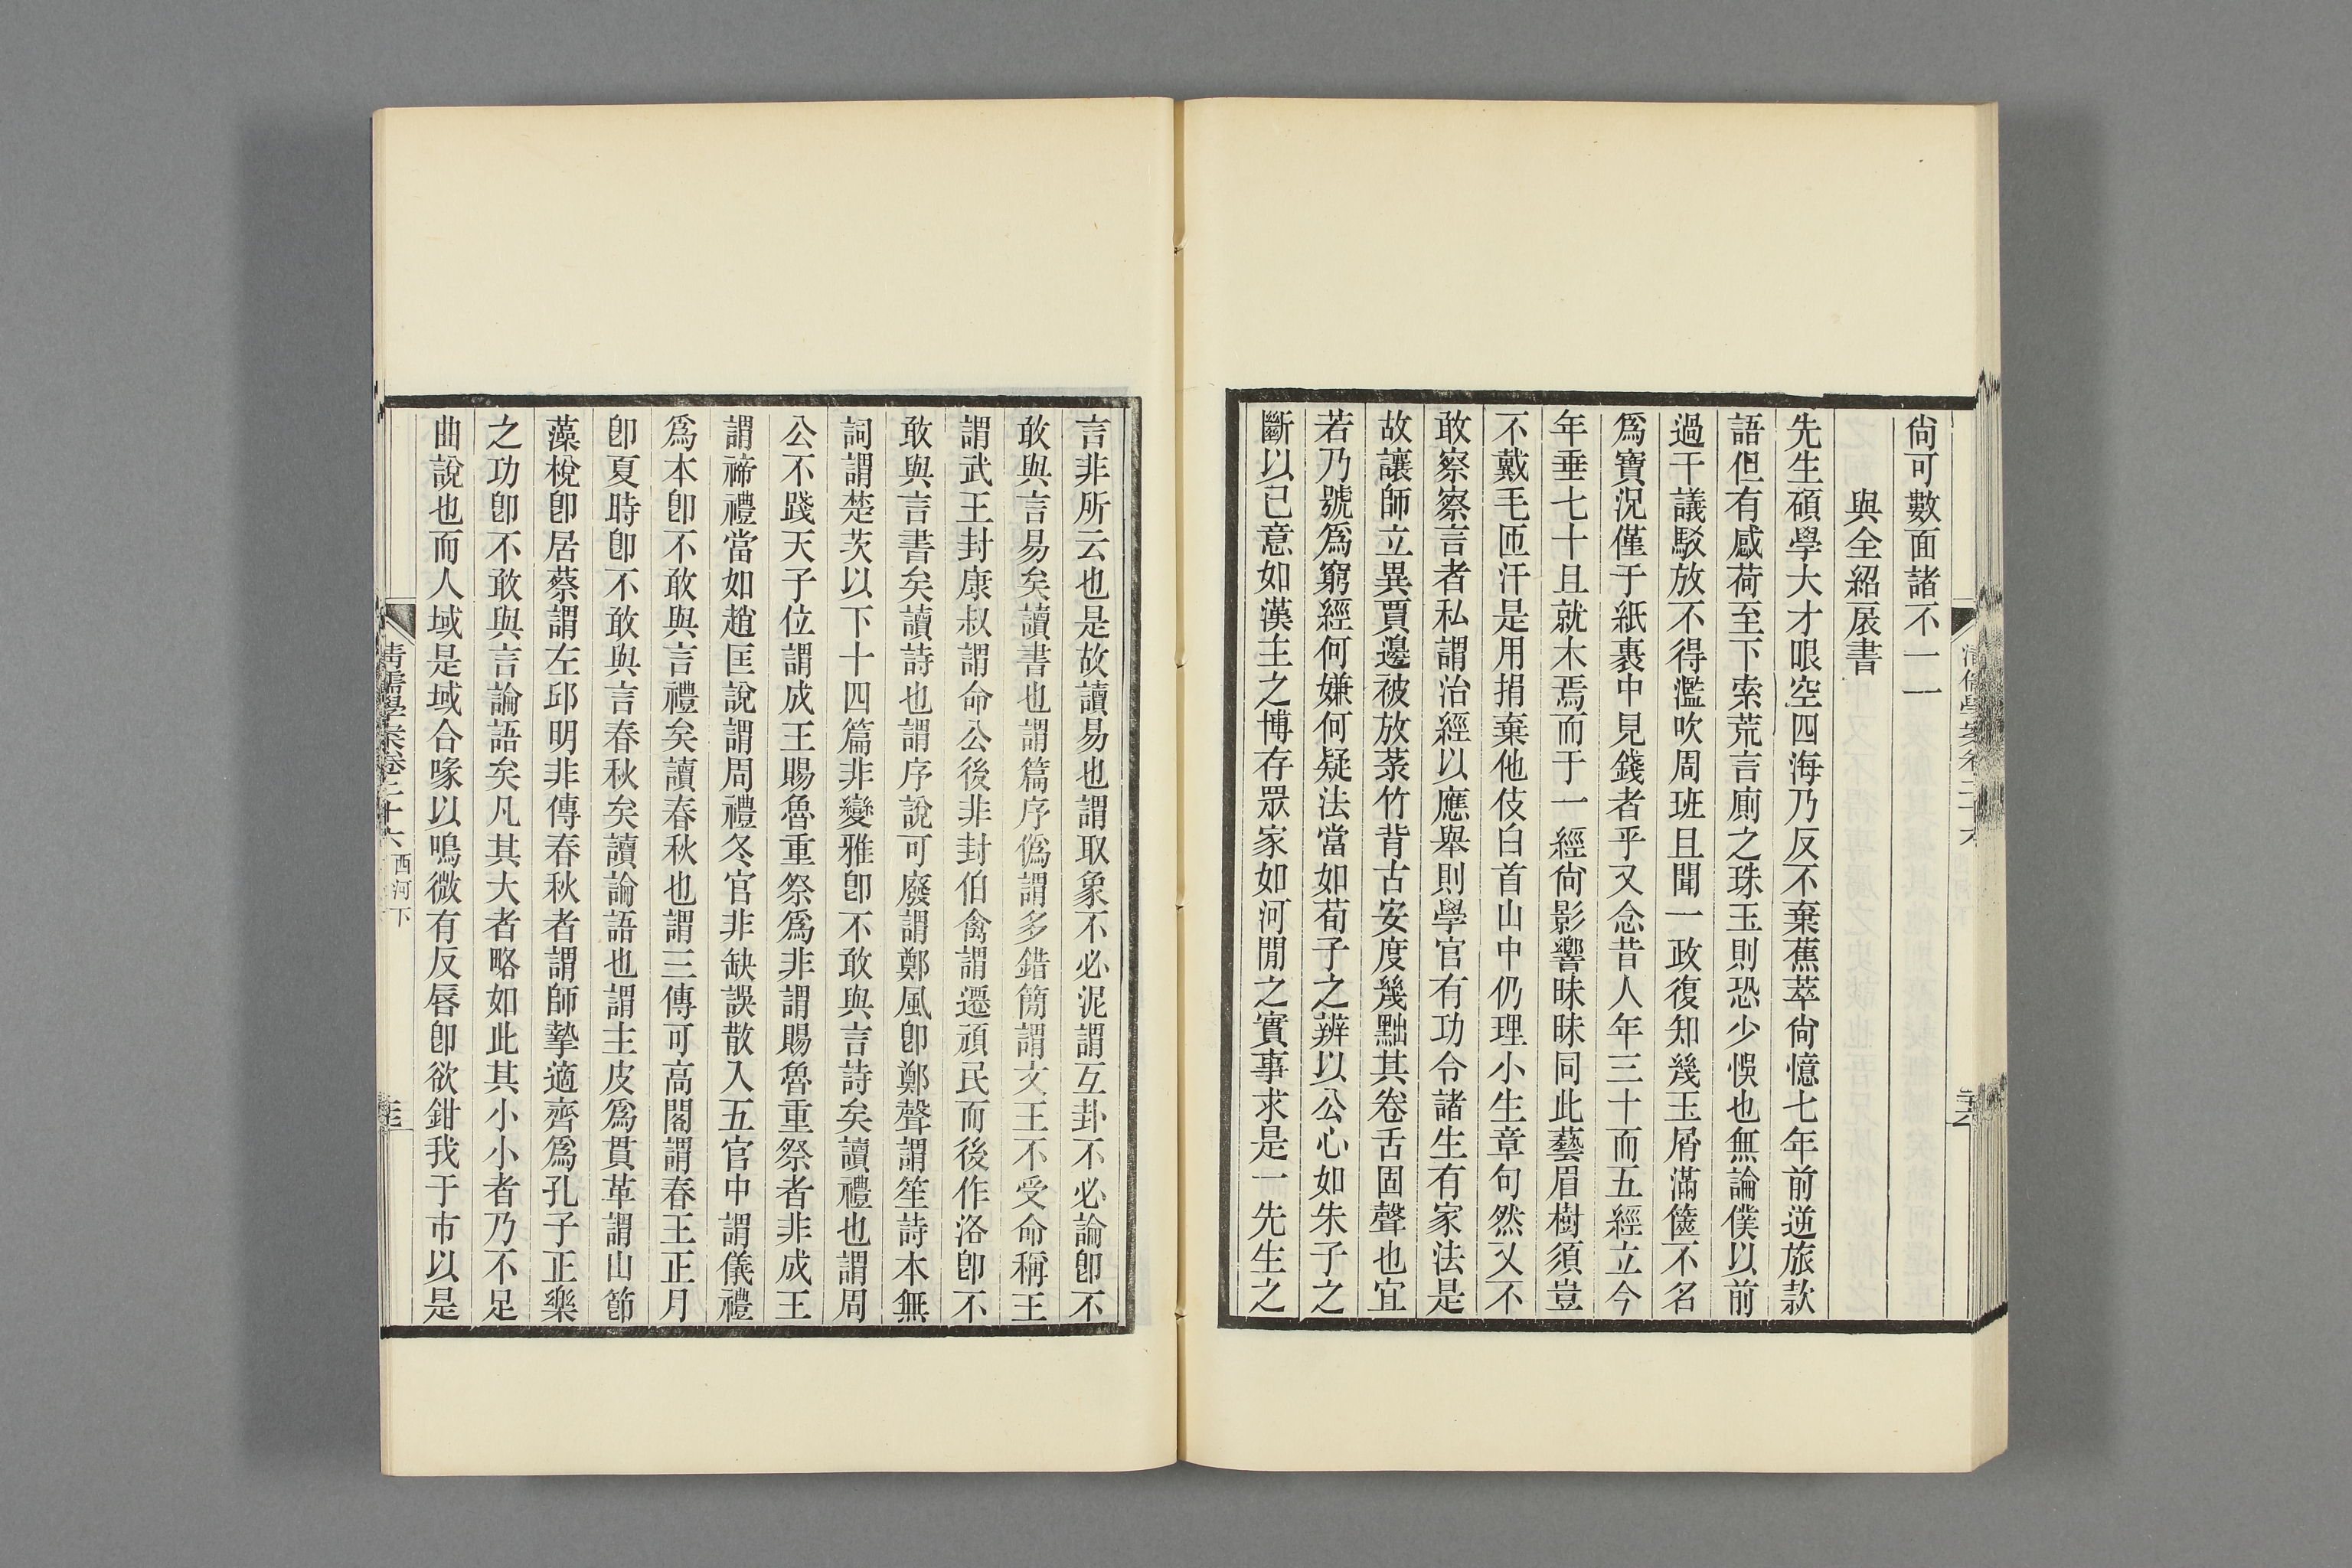 尙可數面諸不一一
與全紹扆書
先生碩學大才眼空四海乃反不棄蕉萃尙憶七年前逆旅款
語但有感荷至下索荒言廁之珠玉則恐少悞也無論僕以前
過干議駁放不得濫吹周班且聞一政復知幾玉屑滿篋不名
爲寶況僅于紙裹中見錢者乎又念昔人年三十而五經立今
年垂七十且就木焉而于一經尙影響昧昧同此藝眉樹須豈
不戴毛匝汗是用捐棄他伎白首山中仍理小生章句然又不
敢察察言者私謂治經以應舉則學官有功令諸生有家法是
故讓師立異賈邊被放菉竹背古安度幾黜其卷舌固聲也宜
若乃號爲窮經何嫌何疑法當如荀子之辨以公心如朱子之
斷以已意如漢主之博存眾家如河閒之實事求是一先生之
言非所云也是故讀易也謂取象不必泥謂互卦不必論卽不
敢與言易矣讀書也謂篇序僞謂多錯簡謂文王不受命稱王
謂武王封康叔謂命公後非封伯禽謂遷頑民而後作洛卽不
敢與言書矣讀詩也謂序說可廢謂鄭風卽鄭聲謂笙詩本無
詞謂楚茨以下十四篇非變雅卽不敢與言詩矣讀禮也謂周
公不踐天子位謂成王賜魯重祭爲非謂賜魯重祭者非成王
謂禘禮當如趙匡說謂周禮冬官非缺誤散入五官中謂儀禮
爲本卽不敢與言禮矣讀春秋也謂三傳可高閣謂春王正月
卽夏時卽不敢與言春秋矣讀論語也謂主皮爲貫革謂山節
藻梲卽居蔡謂左邱明非傳春秋者謂師摯適齊爲孔子正樂
之功卽不敢與言論語矣凡其大者略如此其小小者乃不足
曲說也而人域是域合喙以鳴微有反唇卽欲鉗我于市以是
清儒學案卷二十六 西河下